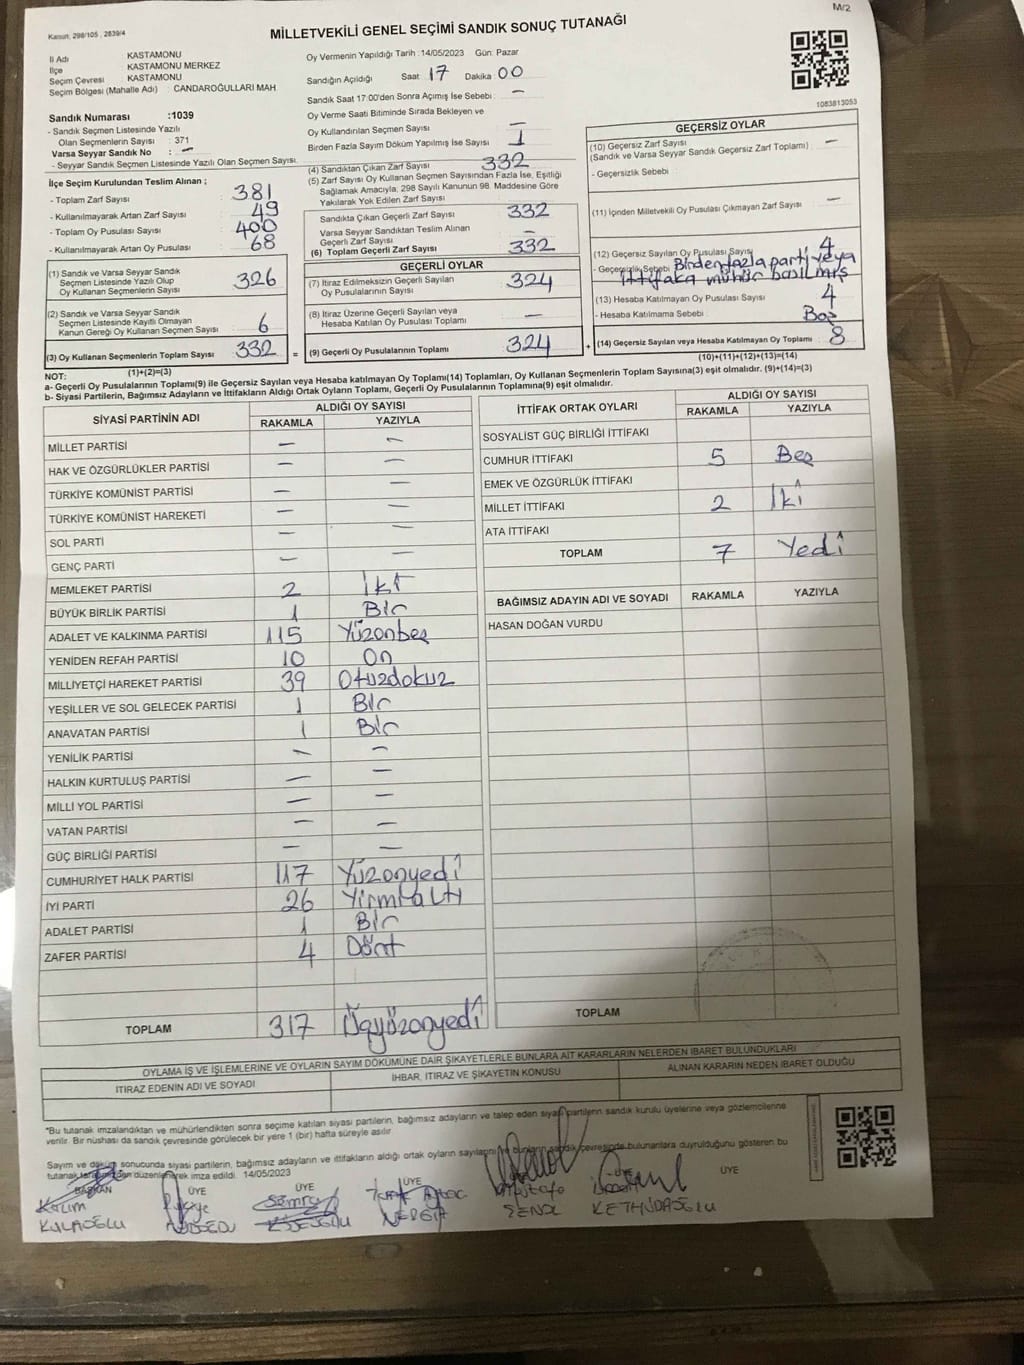 M/2
Kanun: 298/105 , 2839/4
MİLLETVEKİLİ GENEL SEÇİMİ SANDIK SONUÇ TUTANAĞI
İl Adı KASTAMONU
İlçe KASTAMONU MERKEZ
Seçim Çevresi KASTAMONU
Seçim Bölgesi (Mahalle Adı) : CANDAROĞULLARI MAH.
Sandık Numarası :1039
- Sandık Seçmen Listesinde Yazılı
Olan Seçmenlerin Sayısı : 371
Varsa Seyyar Sandık No : —
- Seyyar Sandık Seçmen Listesinde Yazılı Olan Seçmen Sayısı.
Oy Vermenin Yapıldığı Tarih :14/05/2023 Gün: Pazar
Sandığın Açıldığı Saat 17 Dakika 00
Sandık Saat 17:00'den Sonra Açımış İse Sebebi : —
Oy Verme Saati Bitiminde Sırada Bekleyen ve
Oy Kullandırılan Seçmen Sayısı —
Birden Fazla Sayım Döküm Yapılmış İse Sayısı 1
1083813053
İlçe Seçim Kurulundan Teslim Alınan ;
- Toplam Zarf Sayısı : 381
- Kullanılmayarak Artan Zarf Sayısı : 49
- Toplam Oy Pusulası Sayısı : 400
- Kullanılmayarak Artan Oy Pusulası : 68
(1) Sandık ve Varsa Seyyar Sandık
Seçmen Listesinde Yazılı Olup
Oy Kullanan Seçmenlerin Sayısı 326
(2) Sandık ve Varsa Seyyar Sandık
Seçmen Listesinde Kayıtlı Olmayan
Kanun Gereği Oy Kullanan Seçmen Sayısı 6
(3) Oy Kullanan Seçmenlerin Toplam Sayısı 332 =
(1)+(2)=(3)
(4) Sandıktan Çıkan Zarf Sayısı 332
(5) Zarf Sayısı Oy Kullanan Seçmen Sayısından Fazla İse, Eşitliği
Sağlamak Amacıyla, 298 Sayılı Kanunun 98. Maddesine Göre
Yakılarak Yok Edilen Zarf Sayısı
Sandıkta Çıkan Geçerli Zarf Sayısı 332
Varsa Seyyar Sandıktan Teslim Alınan
Geçerli Zarf Sayısı —
(6) Toplam Geçerli Zarf Sayısı 332
GEÇERLİ OYLAR
(7) İtiraz Edilmeksizin Geçerli Sayılan
Oy Pusulalarının Sayısı 324
(8) İtiraz Üzerine Geçerli Sayılan veya
Hesaba Katılan Oy Pusulası Toplamı —
(9) Geçerli Oy Pusulalarının Toplamı 324 +
GEÇERSİZ OYLAR
(10) Geçersiz Zarf Sayısı —
(Sandık ve Varsa Seyyar Sandık Geçersiz Zarf Toplamı)
- Geçersizlik Sebebi :
(11) İçinden Milletvekili Oy Pusulası Çıkmayan Zarf Sayısı —
(12) Geçersiz Sayılan Oy Pusulası Sayısı 4
- Geçersizlik Sebebi Birden fazla parti veya
ittifaka mühür basılmış
(13) Hesaba Katılmayan Oy Pusulası Sayısı 4
- Hesaba Katılmama Sebebi : Boş
(14) Geçersiz Sayılan veya Hesaba Katılmayan Oy Toplamı : 8
(10)+(11)+(12)+(13)=(14)
NOT:
a- Geçerli Oy Pusulalarının Toplamı(9) ile Geçersiz Sayılan veya Hesaba katılmayan Oy Toplamı(14) Toplamları, Oy Kullanan Seçmenlerin Toplam Sayısına(3) eşit olmalıdır. (9)+(14)=(3)
b- Siyasi Partilerin, Bağımsız Adayların ve İttifakların Aldığı Ortak Oyların Toplamı, Geçerli Oy Pusulalarının Toplamına(9) eşit olmalıdır.
SİYASİ PARTİNİN ADI ALDIĞI OY SAYISI
RAKAMLA YAZIYLA
MİLLET PARTİSİ — —
HAK VE ÖZGÜRLÜKLER PARTİSİ — —
TÜRKİYE KOMÜNİST PARTİSİ — —
TÜRKİYE KOMÜNİST HAREKETİ — —
SOL PARTİ — —
GENÇ PARTİ — —
MEMLEKET PARTİSİ 2 İki
BÜYÜK BİRLİK PARTİSİ 1 Bir
ADALET VE KALKINMA PARTİSİ 115 Yüzonbeş
YENİDEN REFAH PARTİSİ 10 On
MİLLİYETÇİ HAREKET PARTİSİ 39 Otuzdokuz
YEŞİLLER VE SOL GELECEK PARTİSİ 1 Bir
ANAVATAN PARTİSİ 1 Bir
YENİLİK PARTİSİ — —
HALKIN KURTULUŞ PARTİSİ — —
MİLLİ YOL PARTİSİ — —
VATAN PARTİSİ — —
GÜÇ BİRLİĞİ PARTİSİ — —
CUMHURİYET HALK PARTİSİ 117 Yüzonyedi
İYİ PARTİ 26 Yirmialtı
ADALET PARTİSİ 1 Bir
ZAFER PARTİSİ 4 Dört
TOPLAM 317 Üçyüzonyedi
İTTİFAK ORTAK OYLARI ALDIĞI OY SAYISI
RAKAMLA YAZIYLA
SOSYALİST GÜÇ BİRLİĞİ İTTİFAKI
CUMHUR İTTİFAKI 5 Beş
EMEK VE ÖZGÜRLÜK İTTİFAKI
MİLLET İTTİFAKI 2 İki
ATA İTTİFAKI
TOPLAM 7 Yedi
BAĞIMSIZ ADAYIN ADI VE SOYADI RAKAMLA YAZIYLA
HASAN DOĞAN VURDU
TOPLAM
OYLAMA İŞ VE İŞLEMLERİNE VE OYLARIN SAYIM DÖKÜMÜNE DAİR ŞİKAYETLERLE BUNLARA AİT KARARLARIN NELERDEN İBARET BULUNDUKLARI
İTİRAZ EDENİN ADI VE SOYADI İHBAR, İTİRAZ VE ŞİKAYETİN KONUSU ALINAN KARARIN NEDEN İBARET OLDUĞU
"Bu tutanak imzalandıktan ve mühürlendikten sonra seçime katılan siyasi partilerin, bağımsız adayların ve talep eden siyasi partilerin sandık kurulu üyelerine veya gözlemcilerine
verilir. Bir nüshası da sandık çevresinde görülecek bir yere 1 (bir) hafta süreyle asılır
Sayım ve döküm sonucunda siyasi partilerin, bağımsız adayların ve ittifakların aldığı ortak oyların sayılarını ve bunların sandık çevresinde bulunanlara duyurulduğunu gösteren bu
tutanak tarafımızdan düzenlenerek imza edildi. 14/05/2023
BAŞKAN ÜYE ÜYE ÜYE ÜYE ÜYE
Kazım Semra Mustafa
KULAOĞLU ŞENOL KETHÜDAOĞLU